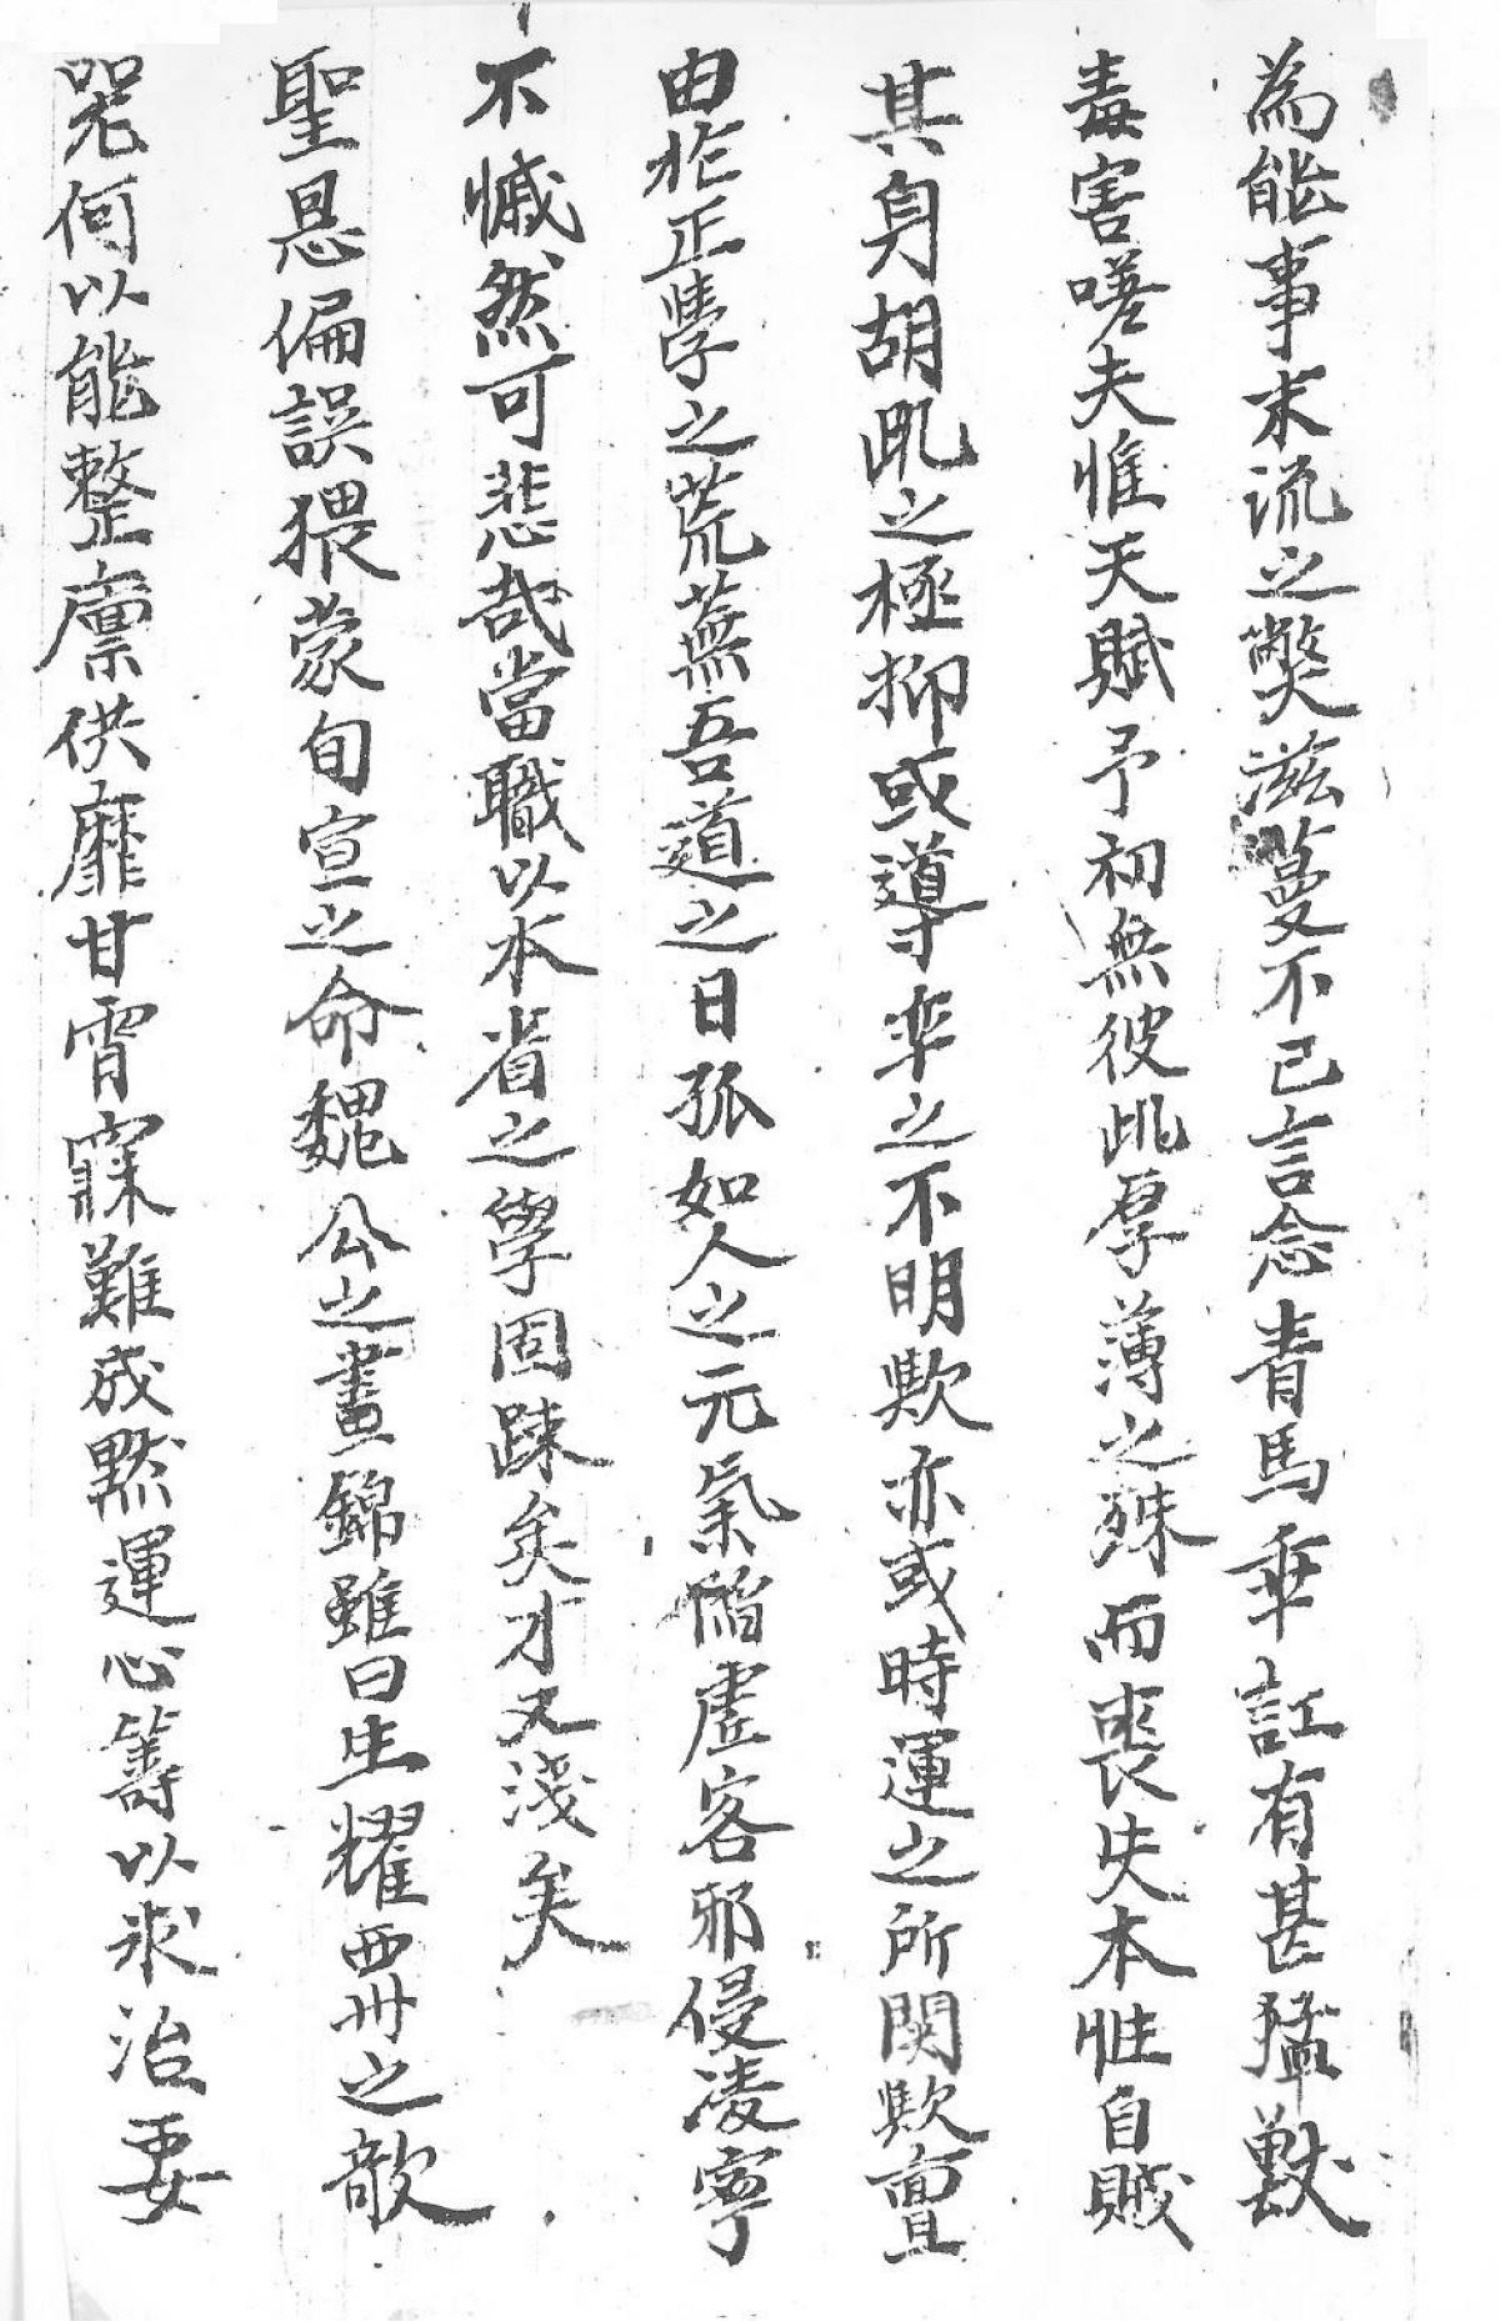 為能事末流之獘滋蔓不已言念青馬乖訌有甚猛獸
毒害嗟夫惟天賦予初無彼此厚薄之殊而喪失本性自賊
其身胡此之極抑或導率之不明歟亦或時運之所関歟亶
由於正學之荒蕪吾道之日孤如人之元氣陷虛客邪侵凌寧
不慽然可悲哉當職以本省之學固踈矣才又淺矣
聖恩偏誤猥蒙旬宣之命魏公之晝錦雖曰生耀西州之歌
咢何以能整廪供靡甘宵寐難成黙運心籌以求治要